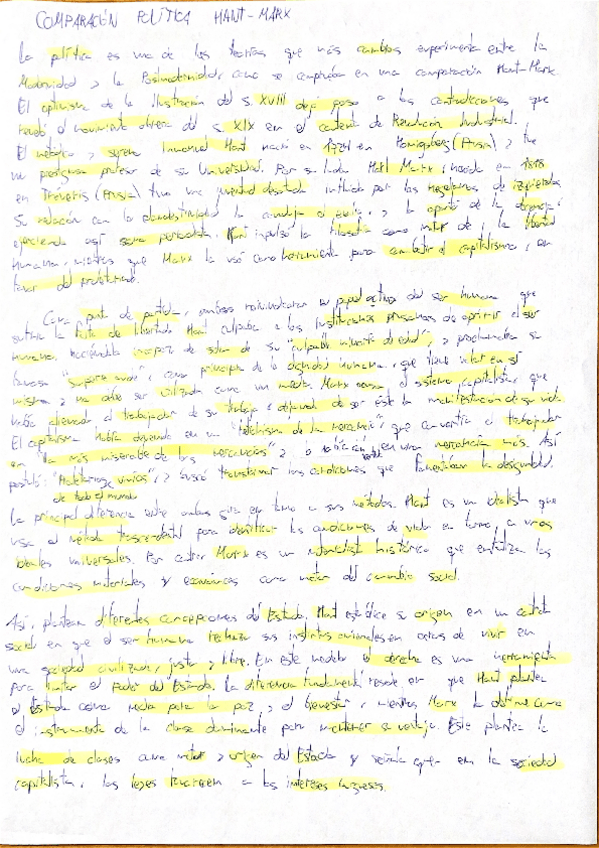 COMPARACIÓN POLÍTICA KANT-MARX
La política es una de las teorías que más cambios experimenta entre la
Modernidad y la Postmodernidad, como se comprueba en una comparación Kant-Marx.
El optimismo de la Ilustración del s. XVIII deja paso a las contradicciones que
reveló el movimiento obrero del s. XIX en el contexto de Revolución Industrial.
El metódico y Immanuel Kant nació en 1724 en Königsberg (Prusia) y fue
un prestigioso profesor de su Universidad. Por su lado Karl Marx, nacido en 1818
en Tréveris (Prusia) tuvo una juventud influida por los hegelianos de izquierdas.
Su relación con la clandestinidad le condujo al exilio, y le apartó de la docencia,
ejerciendo así como periodista. Kant impulsó la filosofía como motor de la libertad
humana, mientras que Marx la usó como herramienta para combatir el capitalismo, en
favor del proletariado.
Como punto de partida, ambos reivindicaron un papel activo del ser humano que
sufría la falta de libertad. Kant culpaba a las instituciones prusianas de oprimir al ser
humano, haciéndolo incapaz de salir de su "culpable minoría de edad", y proclamaba su
famosa "sapere aude", como principio de la dignidad humana, que tiene valor en sí
misma y no debe ser utilizada como un medio. Marx el sistema capitalista, que
había alienado al trabajador de su trabajo, dejando de ser éste la manifestación de su vida.
El capitalismo había en un "fetichismo de la mercancía", que convertía al trabajador
en "la más miserable de las mercancías" y en una mercancía más. Así
postuló: "Proletarios, uníos", y buscó transformar las condiciones que fomentaban la desigualdad.
de todo el mundo
La principal diferencia entre ambos gira en torno a sus métodos. Kant es un idealista que
usa el método trascendental para identificar las condiciones de vida en torno a unos
ideales universales. Por contra, Marx es un materialista histórico que enfatiza las
condiciones materiales y económicas como motor del cambio social.
Así, plantean diferentes concepciones del Estado. Kant establece su origen en un contrato
social en que el ser humano rechaza sus instintos animales en aras de vivir en
una sociedad civilizada, justa y libre. En este modelo el derecho es una herramienta
para limitar el poder del Estado. La diferencia fundamental reside en que Kant plantea
el Estado como medio para la paz y el bienestar, mientras Marx lo define como
el instrumento de la clase dominante para mantener su ventaja. Este plantea la
lucha de clases como motor y origen del Estado y señala que en la sociedad
capitalista, las leyes favorecen a los intereses burgueses.